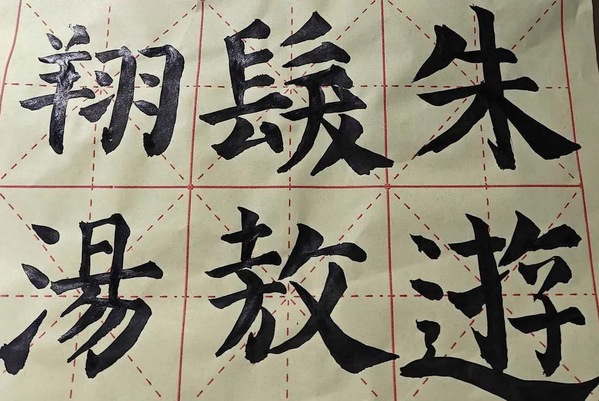 朱髮翔
遊敖湯